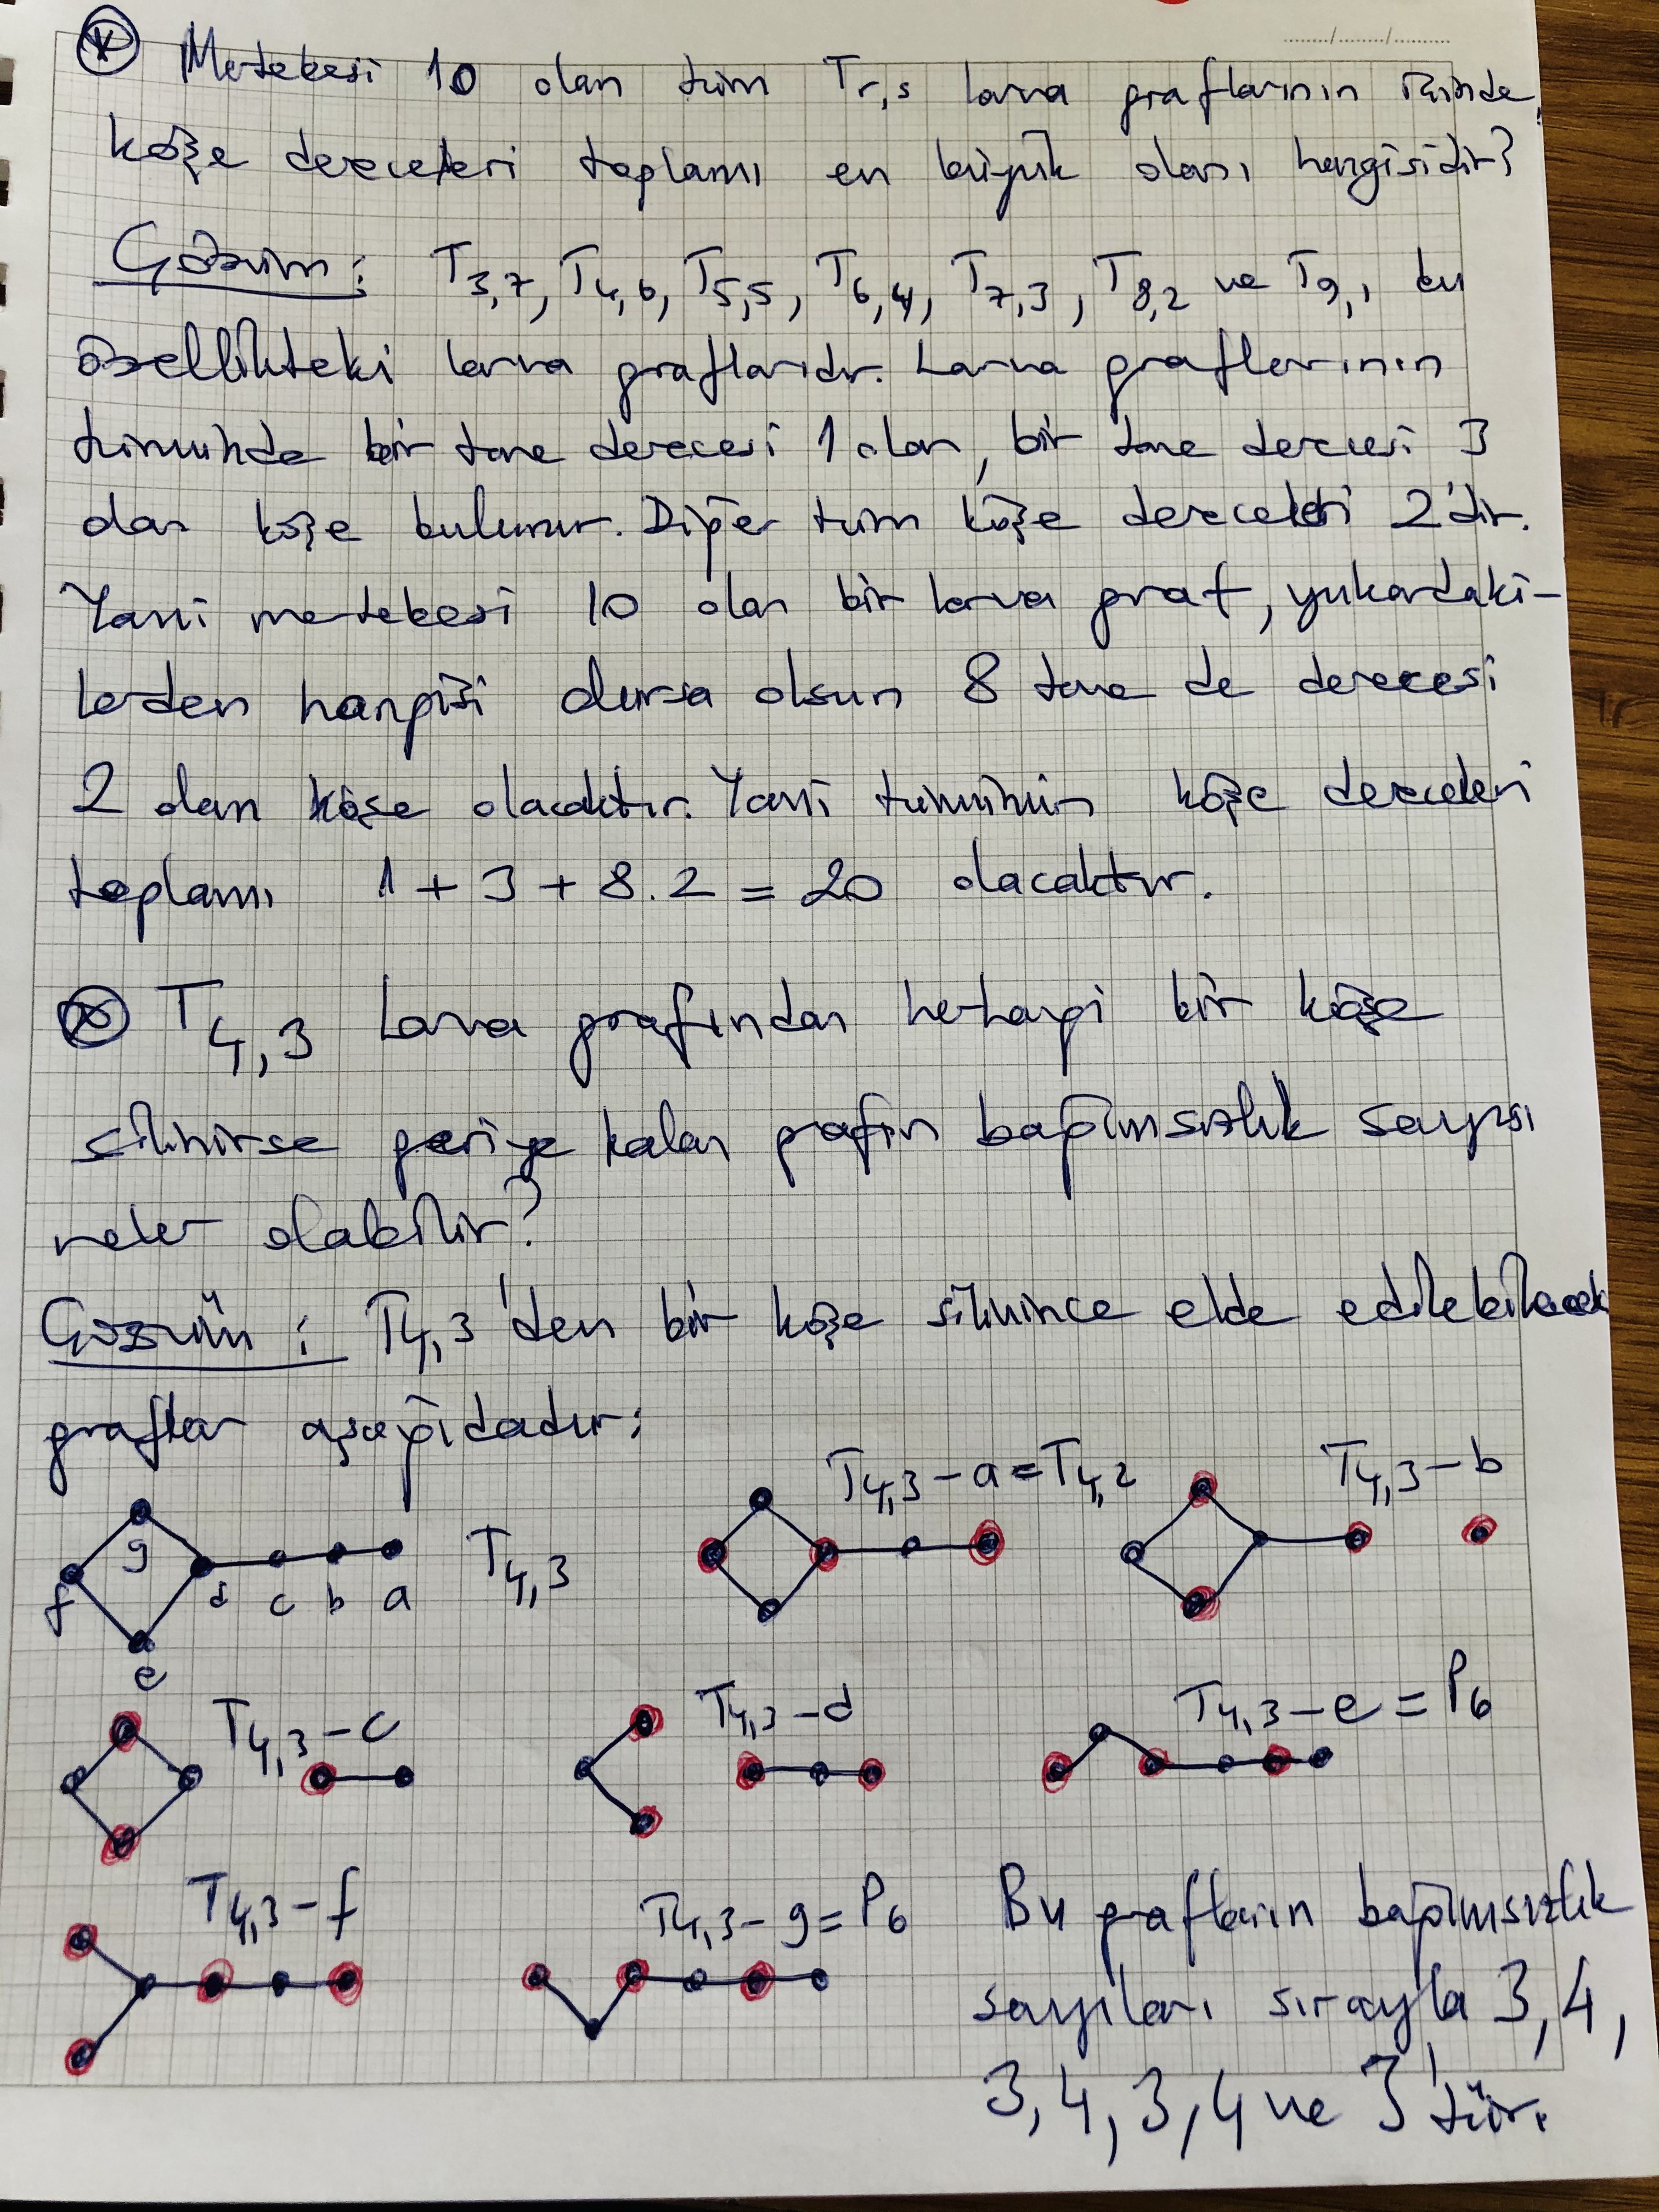 * Mertebesi 10 olan tüm Tr,s larva graflarının içinde,
köşe dereceleri toplamı en büyük olanı hangisidir?
Çözüm: T3,7, T4,6, T5,5, T6,4, T7,3, T8,2 ve T9,1 bu
özellikteki larva graflarıdır. Larva graflarının
tümünde bir tane derecesi 1 olan, bir tane derecesi 3
olan köşe bulunur. Diğer tüm köşe dereceleri 2'dir.
Yani mertebesi 10 olan bir larva graf, yukarıdaki-
lerden hangisi olursa olsun 8 tane de derecesi
2 olan köşe olacaktır. Yani tümünün köşe dereceleri
toplamı 1 + 3 + 8.2 = 20 olacaktır.
T4,3 Larva grafından herhangi bir köşe
silinirse geriye kalan grafın bağımsızlık sayısı
neler olabilir?
Çözüm: T4,3'den bir köşe silinince elde edilebilecek
graflar aşağıdadır:
T4,3-a=T4,2 T4,3-b
g T4,3
f d c b a
e
T4,3-c T4,3-d T4,3-e=P6
T4,3-f T4,3-g=P6 Bu grafların bağımsızlık
sayıları sırayla 3, 4,
3, 4, 3, 4 ve 3'tür.